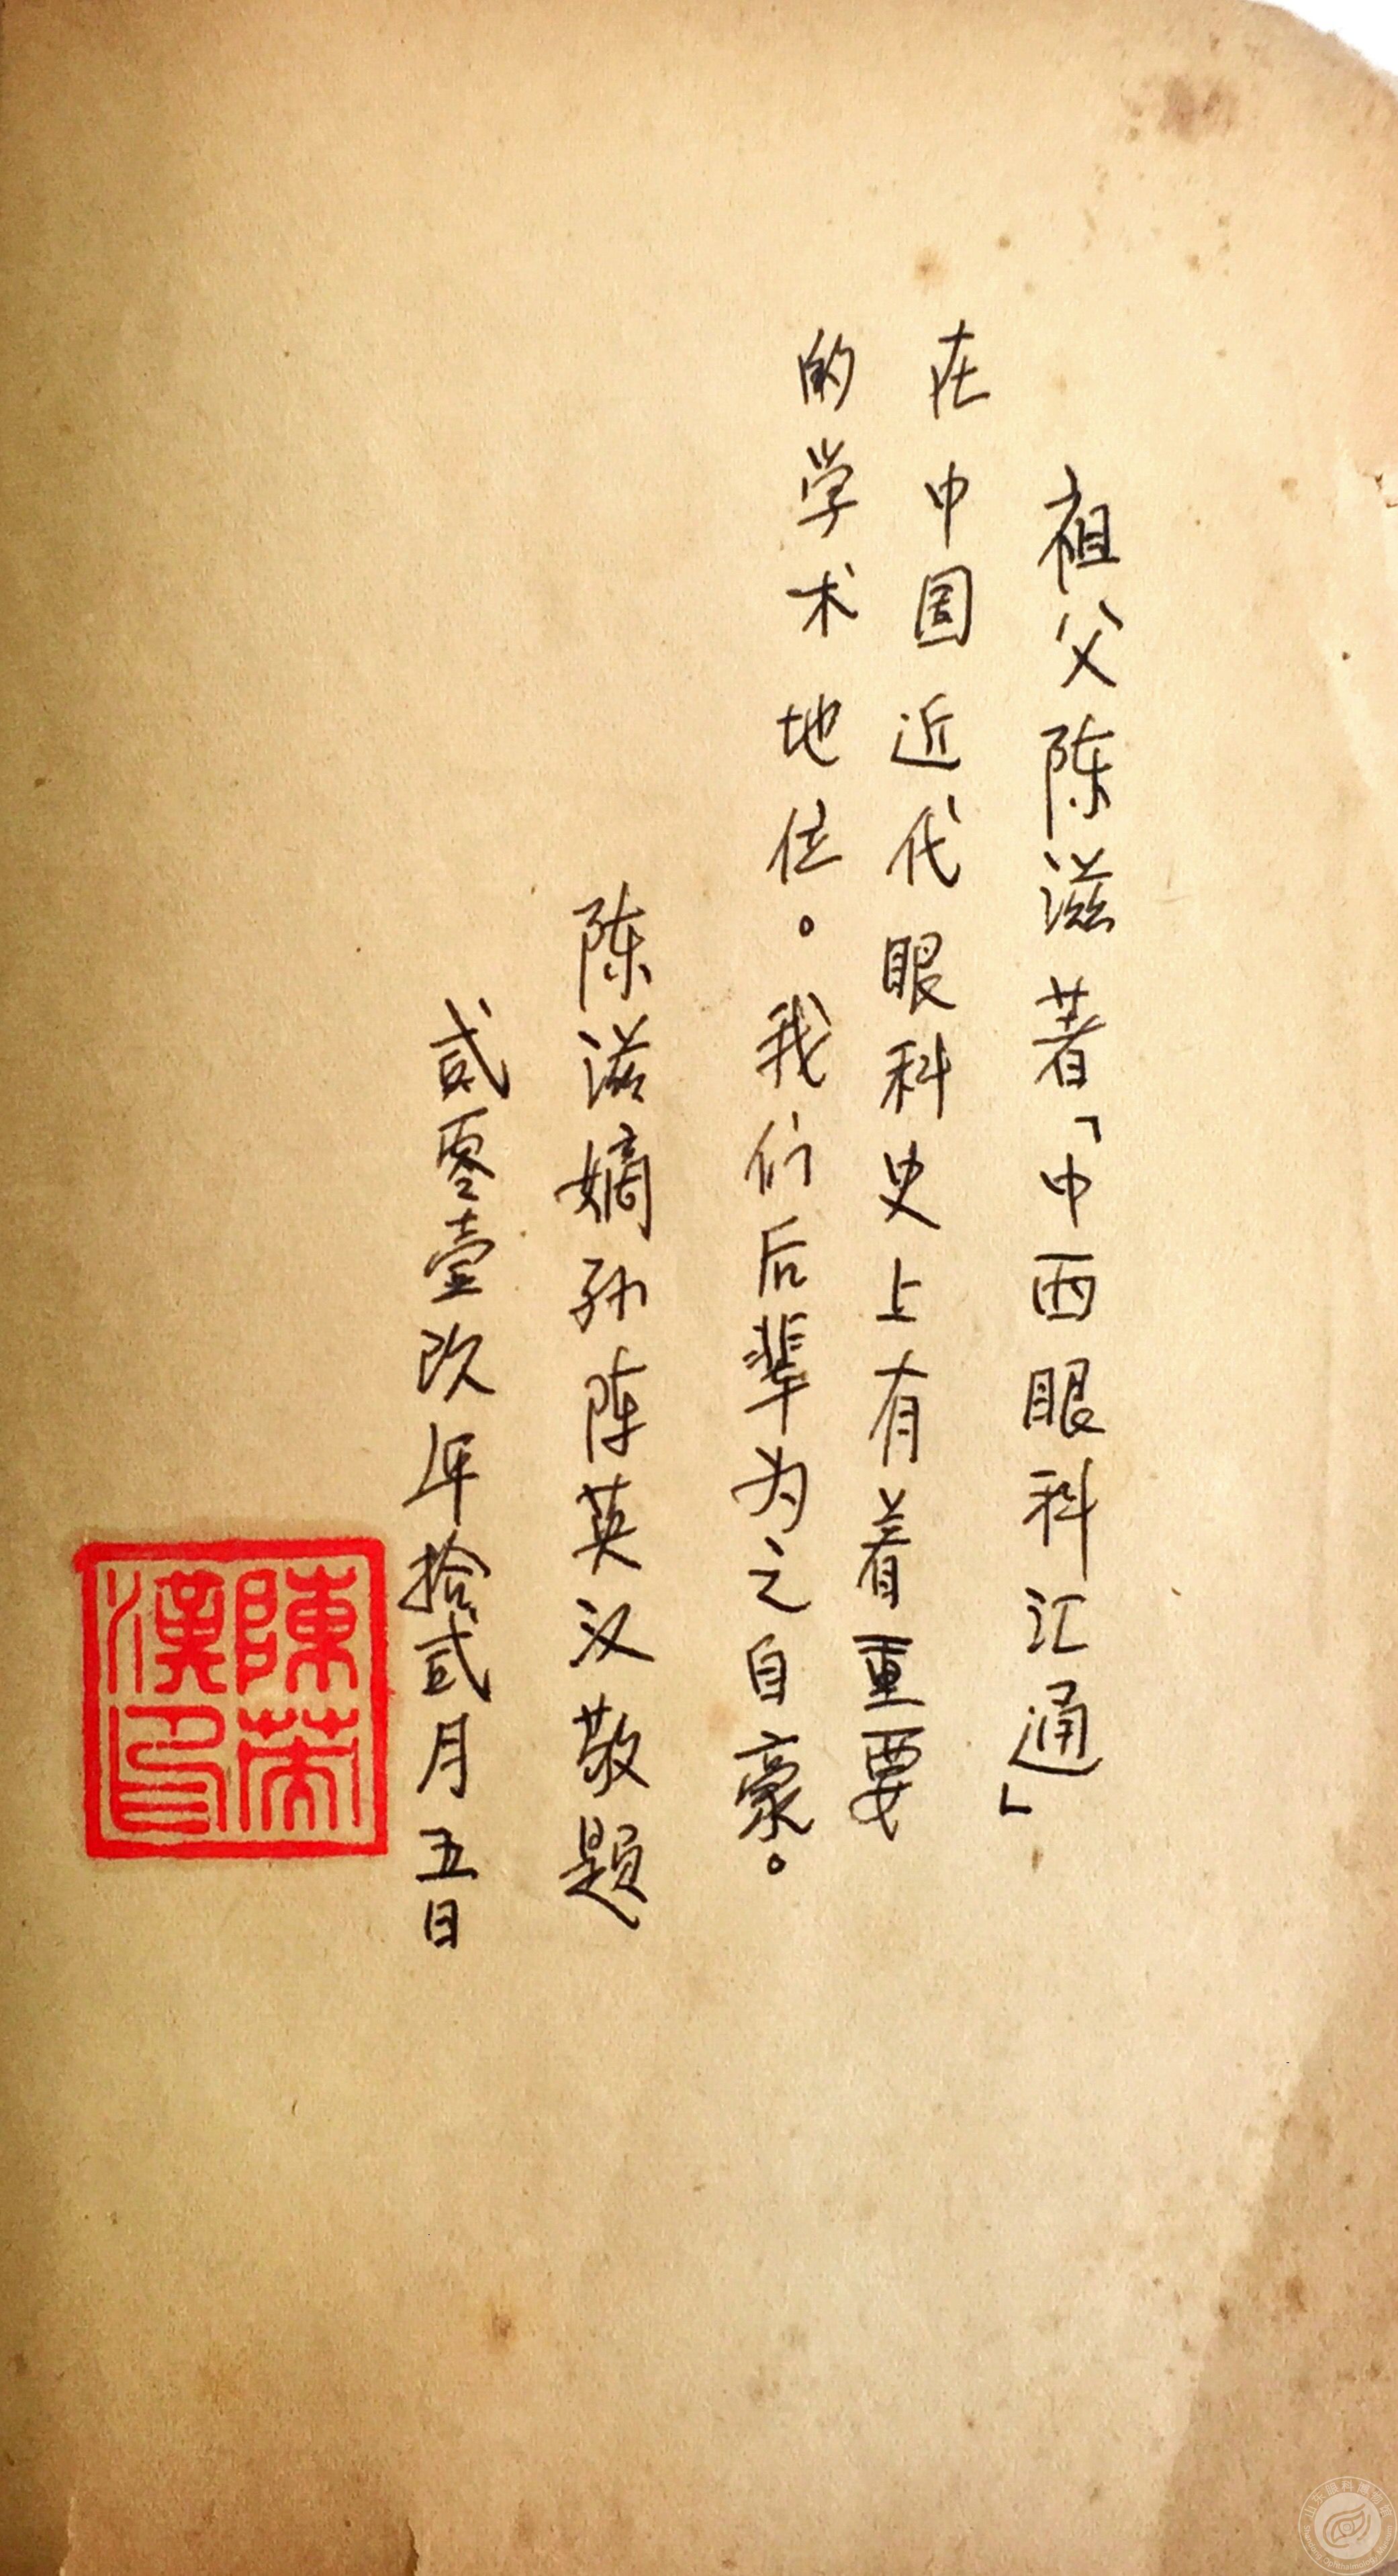 祖父陈滋著「中西眼科汇通」
在中国近代眼科史上有着重要
的学术地位。我们后辈为之自豪。
陈滋嫡孙陈英汉敬题
贰零壹玖年拾贰月五日
陳英
漢印